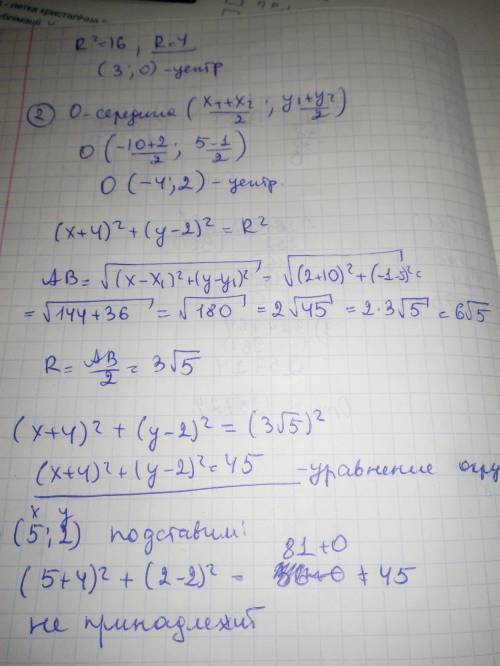 R²=16, R=4
(3;0)-центр
② O-середина (x₁+x₂/2; y₁+y₂/2)
O (-10+2/2; 5-1/2)
O (-4;2)-центр.
(x+4)²+(y-2)²=R²
AB=√(x-x₁)²+(y-y₁)²=√(2+10)²+(-1-5)²=
=√144+36=√180=2√45=2·3√5=6√5
R=AB/2=3√5
(x+4)²+(y-2)²=(3√5)²
(x+4)²+(y-2)²=45 -уравнение окру
x y
(5;2) подставим:
81+0
(5+4)²+(2-2)²= ≠45
не принадлежит